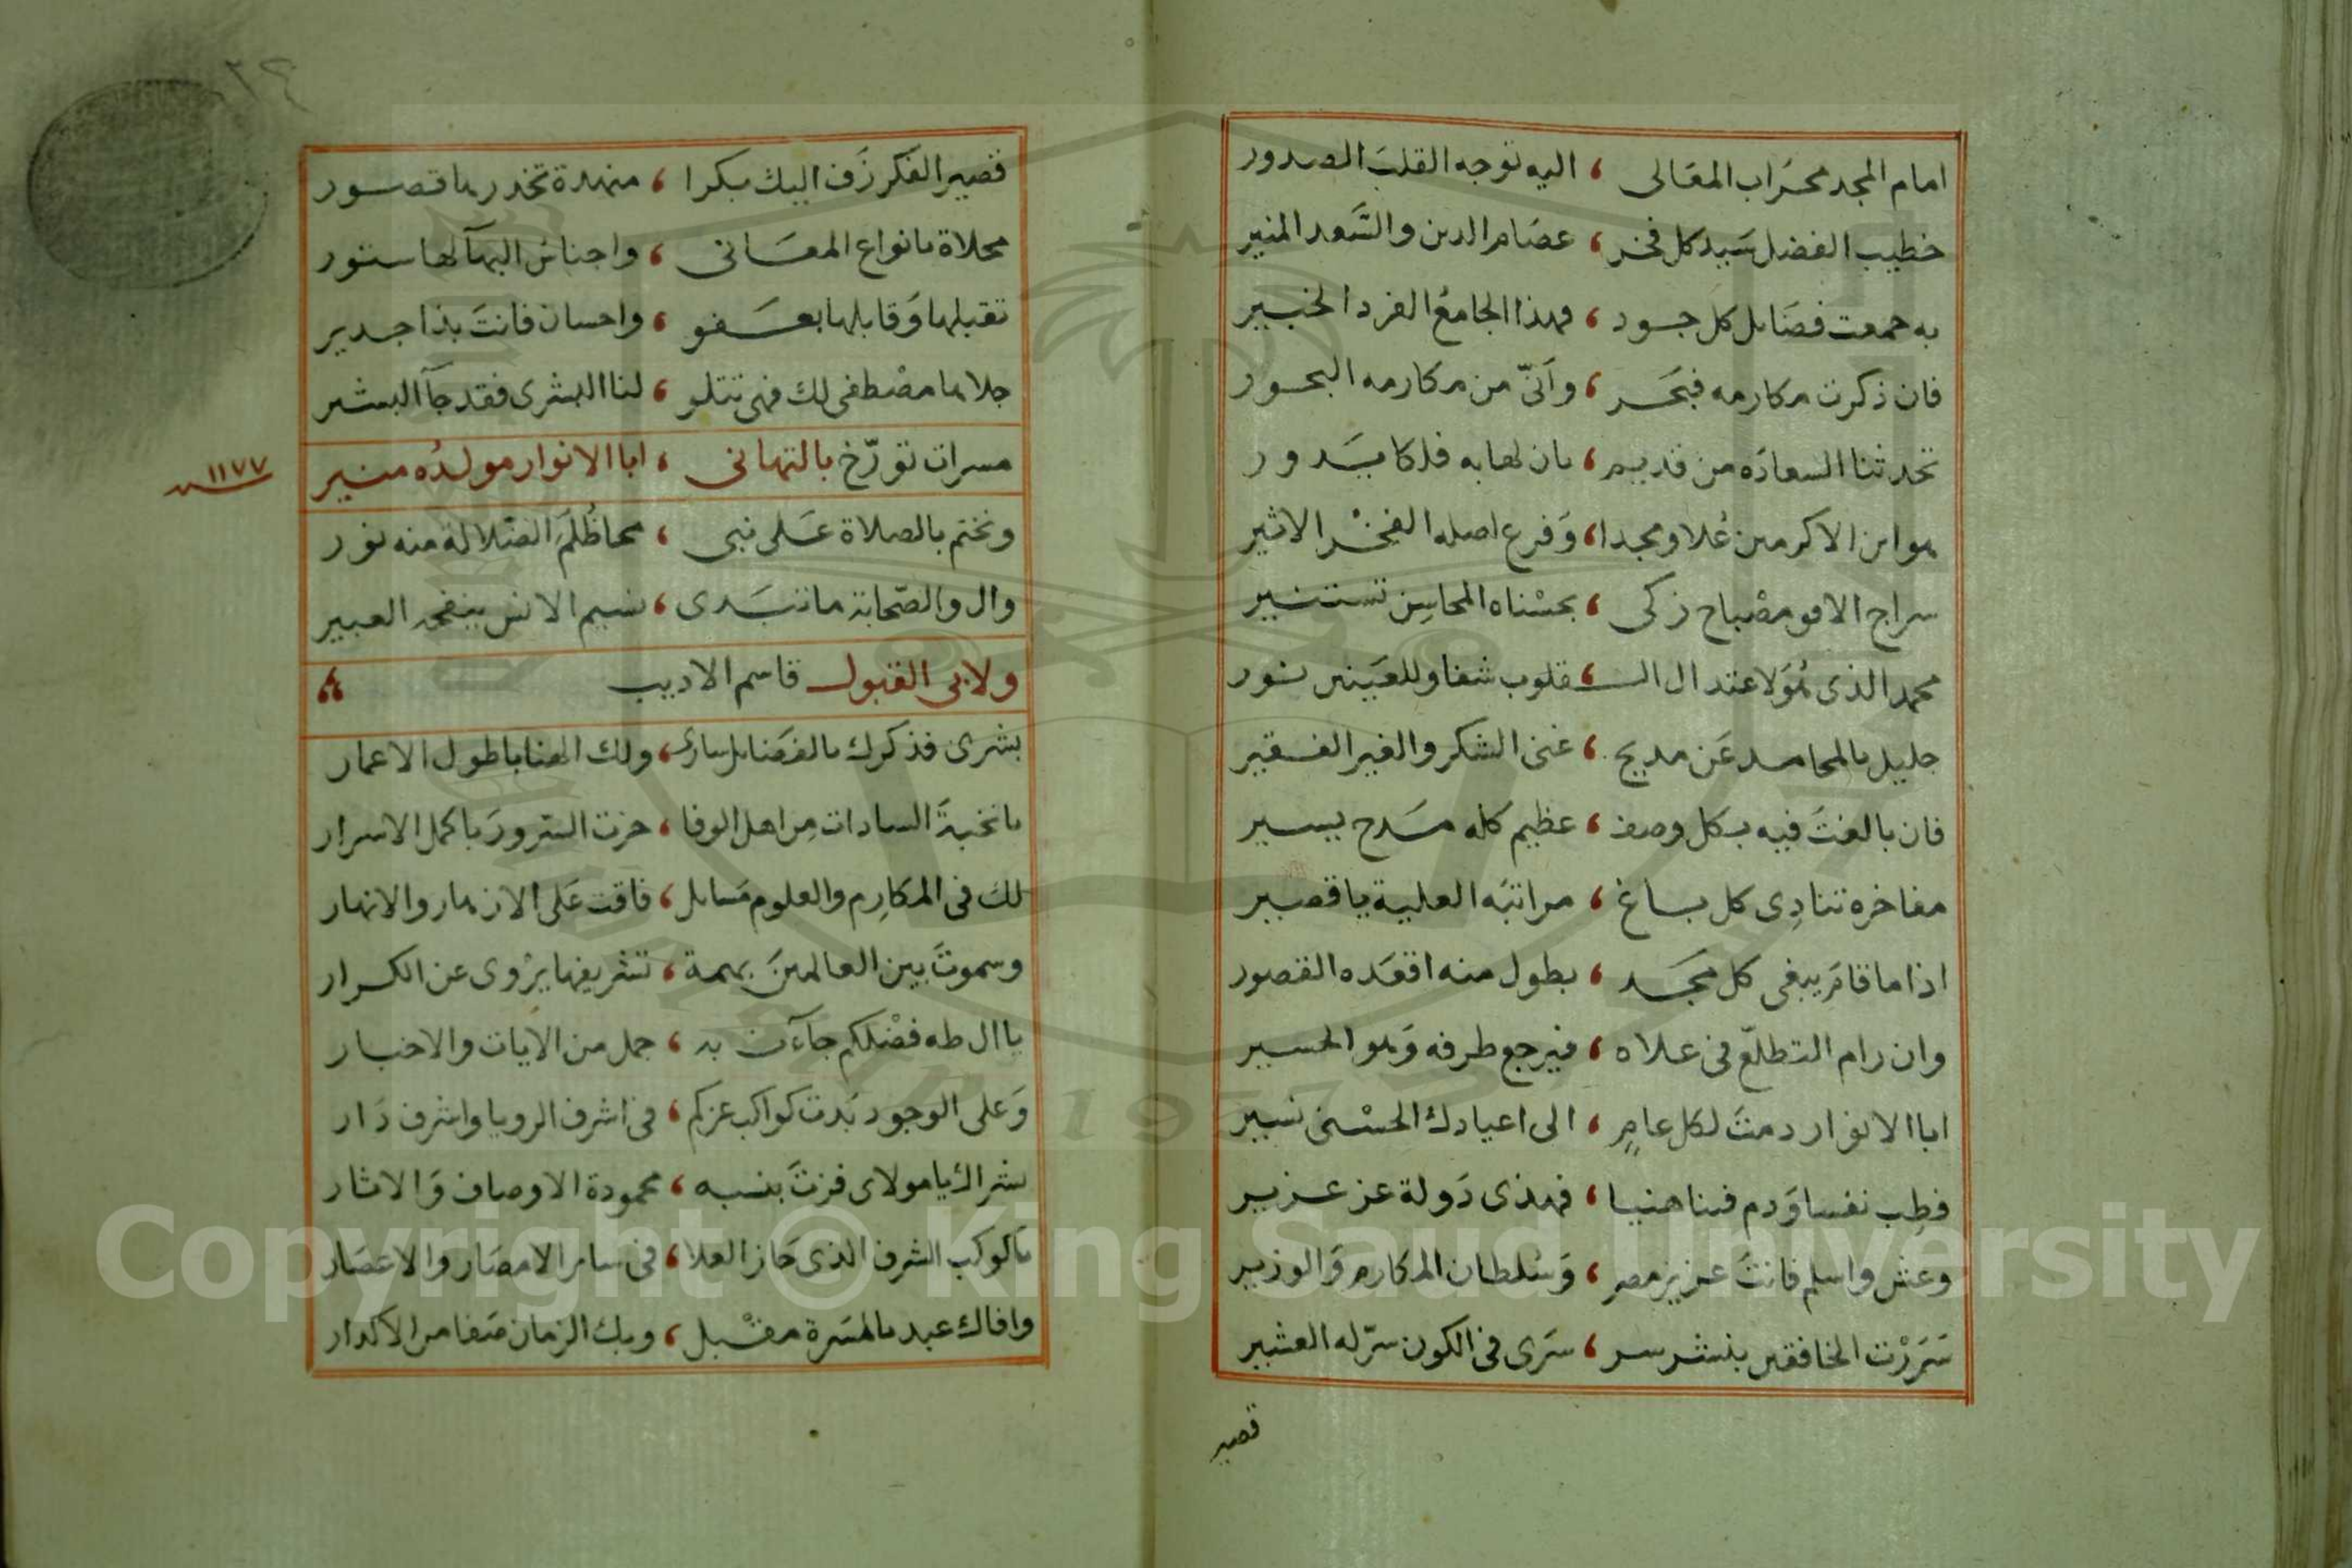 امام المجد محراب المعالى ، اليه توجه القلب الصدور
خطيب الفضل سيد كل فخر ، عصام الدين والسعد المنير
به جمعت فضايل كل جود ، فهذا الجامع الفرد الخبير
فان ذكرت مكارمه فبحر ، وأنّى من مكارمه البحور
تحدثنا السعادة من قديم ، بان لها به فلكا يدور
هو ابن الاكرمين عُلا ومجدا ، وفرع اصله الفخر الاثير
سراج الافق مصباح زكى ، بحسناه المحاسن تستنير
محمد الذى هو لاعتدال الـ ، ـقلوب شفا وللعينين نور
جليل بالمحامد عن مديح ، غنى الشكر والغير الفقير
فان بالغت فيه بكل وصف ، عظيم كله مدح يسير
مفاخره تنادِى كل باغ ، مراتبه العلية يا قصير
اذا ما قام يبغى كل مجد ، بطول منه اقعده القصور
وان رام التطلّع فى علاه ، فيرجع طرفه وهو الحسير
ابا الانوار دمت لكل عامٍ ، الى اعيادك الحسنى نسير
فطِب نفسا ودم فينا هنيا ، فهذى دولة عز عزيز
وعش واسلم فانت عزيز مصر ، وسلطان المكارم والوزير
سَرَرْت الخافقين بنشر سر ، سَرى فى الكون سرّ له العشير
قصير
٢٤
قصير الفكر زف اليك بكرا ، منهدة تخدرها قصور
محلاة بانواع المعانى ، واجناس البهآ لها ستور
تقبلها وقابلها بعفو ، واحسان فانت بذا جدير
جلاها مصطفى لك فهى تتلو ، لنا البشرى فقد جآ البشير
مسرات تورّخ بالتهانى ، ابا الانوار مولدُه منير
سنه ١١٧٧
ونختم بالصلاة على نبى ، محا ظُلَمَ الضلالة منه نور
وال والصّحابة ما تبدى ، نسيم الانس ينفحه العبير
ولابى القبول قاسم الاديب
بشرى فذكرك بالفضايل سارى ، ولك الهنا باطول الاعمار
يا نخبة السادات مِن اهل الوفا ، حزت السرور باكمل الاسرار
لك فى المكارِم والعلوم مسايل ، فاقت على الازهار والانهار
وسموت بين العالمين بهمة ، تشريفها يروى عن الكرار
يا ال طه فضلكم جآءت به ، جمل من الايات والاخبار
وعلى الوجود بدت كواكب عزكم ، فى اشرف الرويا واشرف دار
بشراك يا مولاى فزت بنسبه ، محمودة الاوصاف والاثار
يا كوكب الشرف الذى حاز العلا ، فى ساير الامصار والاعصار
وافاك عبد بالمسرة مقبل ، وبك الزمان صفا من الاكدار
Copyright © King Saud University
1957